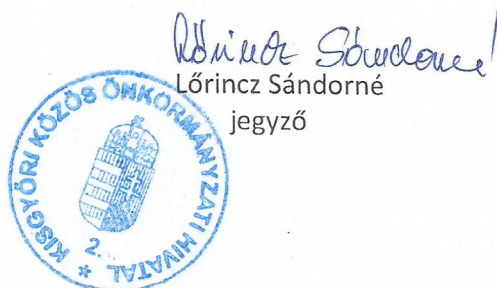 Lőrincz Sándorné
Lőrincz Sándorné
jegyző
KISGYŐRI KÖZÖS ÖNKORMÁNYZATI HIVATAL
2.
*